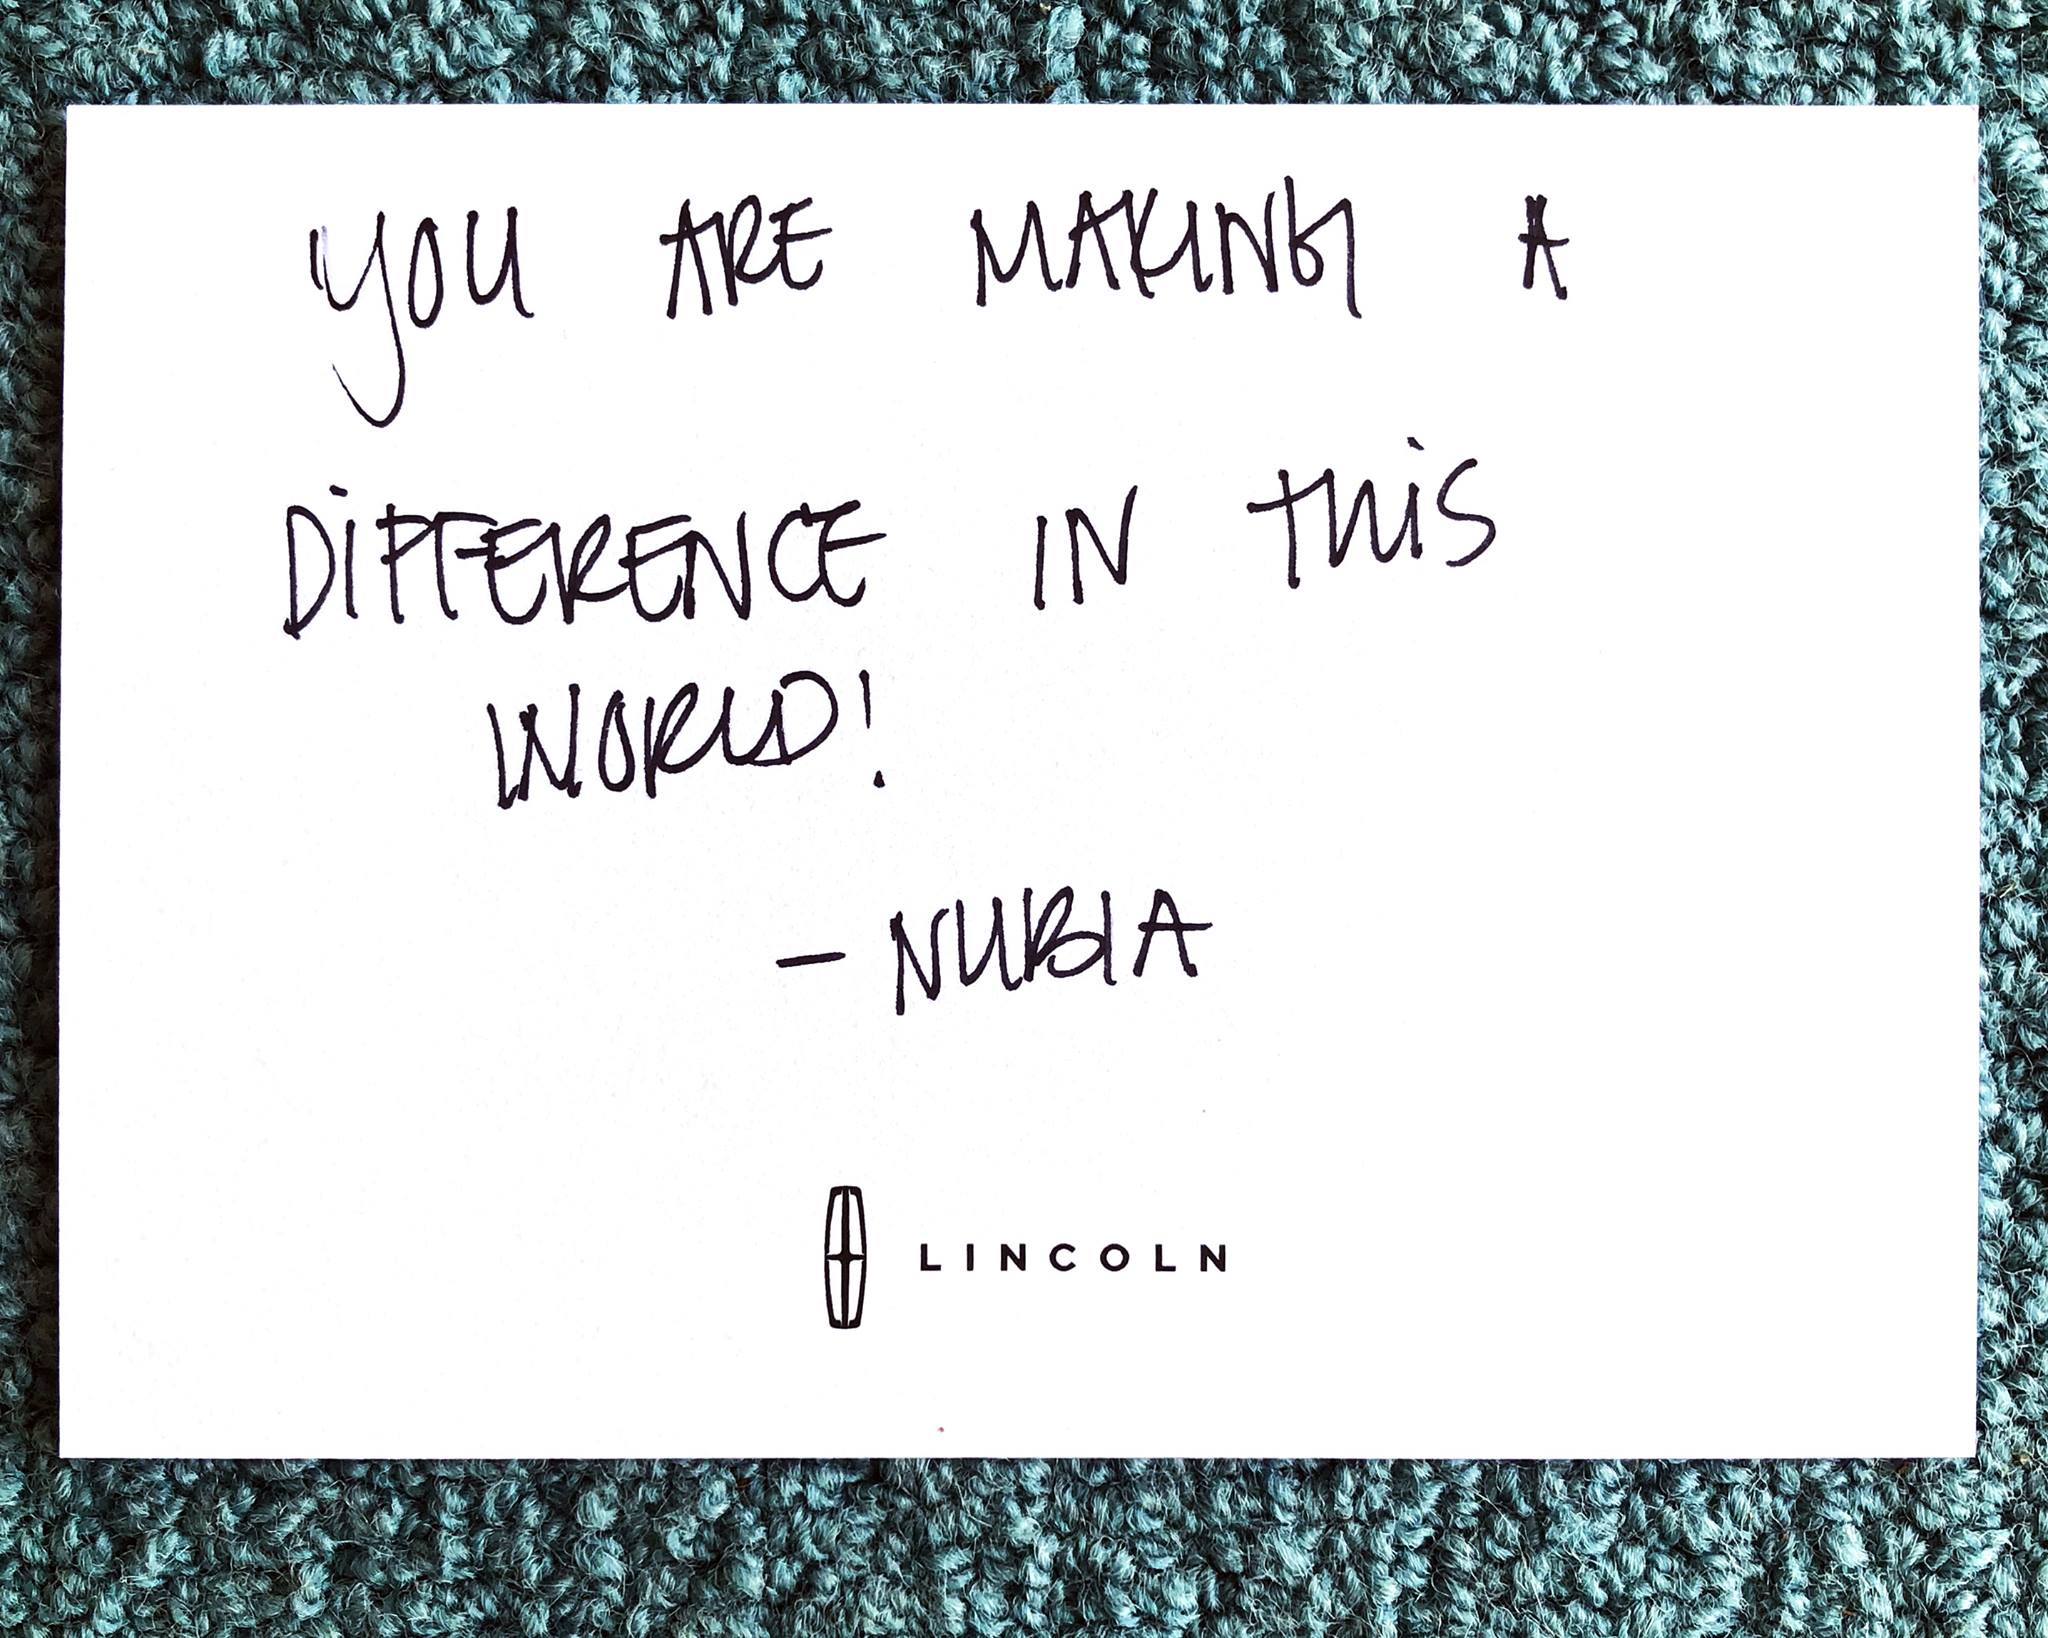 YOU ARE MAKING A
DIFFERENCE IN THIS
WORLD!
- NUBIA
LINCOLN